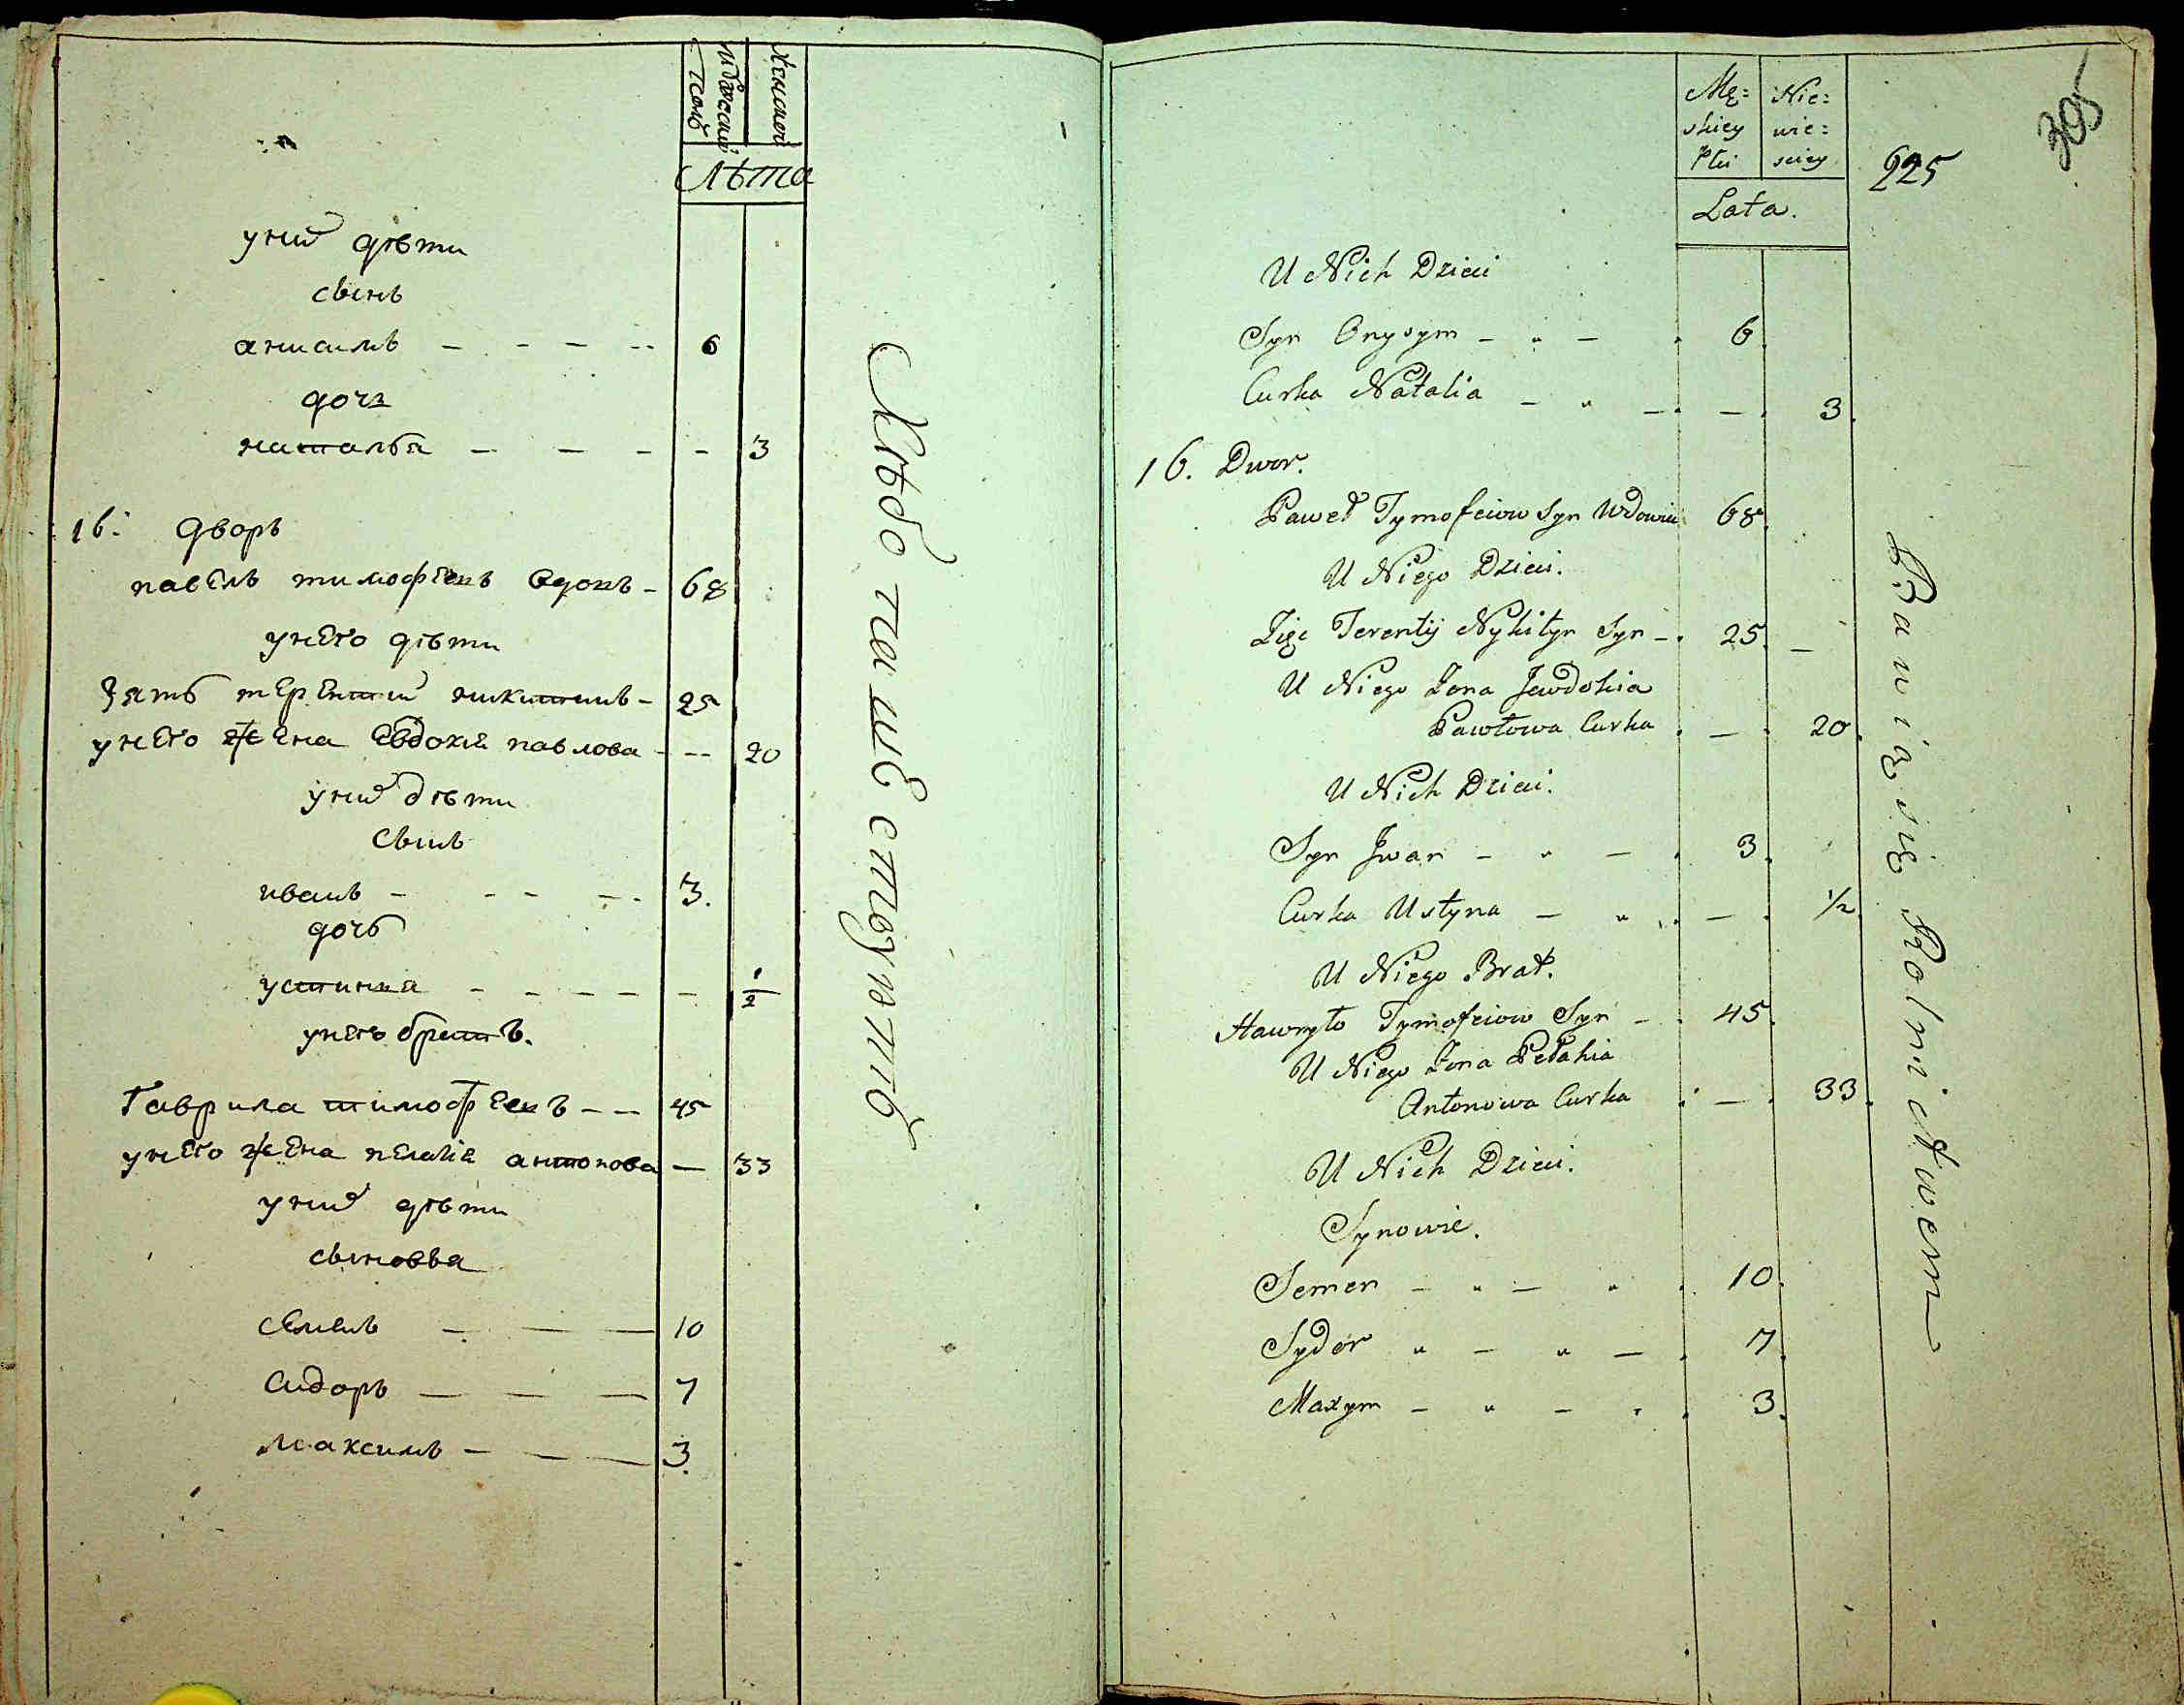 Мужескій
полъ
Женской
Лѣта
у них дѣти
сынъ
анисимъ — - — -- 6
дочь
наталья — — - - 3
16: дворъ
павелъ тимофеевъ вдовъ - 68
у него дѣти
Зять терентий никитинъ - 25
у него жена Евдокія павлова - -- 20
у них дѣти
сынъ
иванъ - - - -. 3.
дочь
устинья - - — — - 1/2
у него братъ.
Гаврила тимофеевъ -- 45
у него жена пелагія антонова — 33
у них дѣти
сыновья
семенъ — — — 10
сидоръ — — — 7
максимъ — — — 3.
Хлѣбопашествуютъ
Mę=
skiey
Płci
Nie=
wie=
sciey
Lata.
225
305
U Nich Dzieci
Syn Onysym - " — . 6.
Curka Natalia — " — . — . 3.
16. Dwor.
Paweł Tymofeiow Syn Wdowiec 68.
U Niego Dzieci.
Zięc Terentij Nykityn Syn - . 25. —
U Niego Zona Jewdokia
Pawłowa Curka . — . 20.
U Nich Dzieci.
Syn Jwan - " — . 3.
Curka Ustyna — " . — . 1/2.
U Niego Brat.
Hawryło Tymofeiow Syn - . 45.
U Niego Zona Pełahia
Antonowa Curka . — . 33.
U Nich Dzieci.
Synowie.
Semen - " — " . 10.
Sydor " — " — . 7.
Maxym - " - " . 3.
Bawią się Rolnictwem